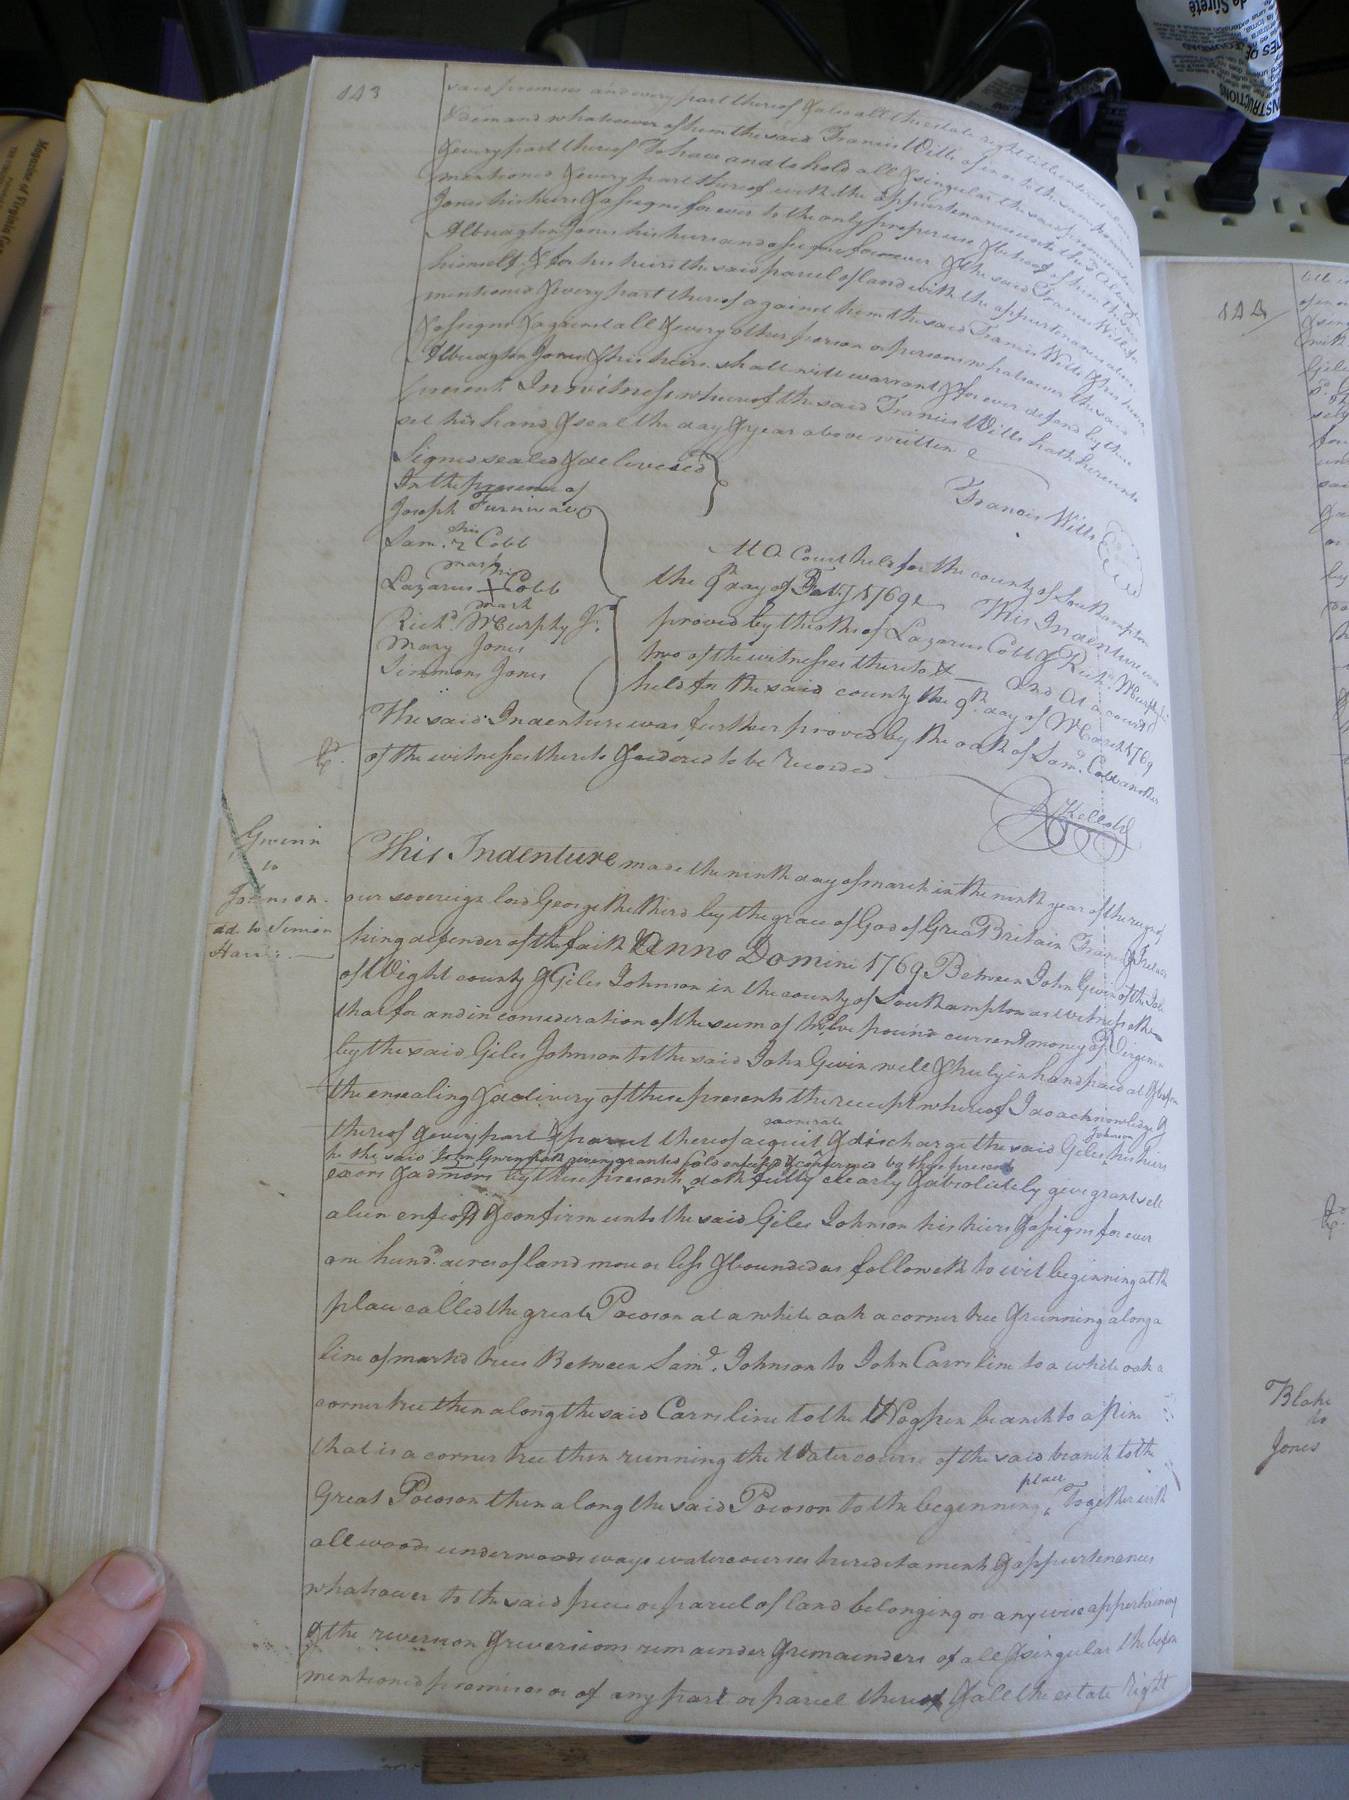 143
said premises and every part thereof & also all the estate right title interest
& demand whatsoever of him the said Francis Wills of in or to the same premises
& every part thereof To have and to hold all & singular the said premises
mentioned & every part thereof with the appurtenances unto the said Albridgton
Jones his heirs & assigns for ever to the only proper use & behoof of him the said
Albridgton Jones his heirs and assigns for ever & the said Francis Wills for
himself & for his heirs the said parcel of land with the appurtenances above
mentioned & every part thereof against him the said Francis Wills & his heirs
& assigns & against all & every other person or persons whatsoever the said
Albridgton Jones & his heirs shall will warrant & for ever defend by these
presents In witness whereof the said Francis Wills hath hereunto
set his hand & seal the day & year above written
Signed sealed & delivered
In the presence of
Francis Wills
Joseph Turnival
Sam. his Cobb
mark
Lazarus his X Cobb
mark
Richd. McCurphy Jr.
Mary Jones
Simmons Jones
At a Court held for the county of Southampton
the 9th day of Feby. 1769 This Indenture was
proved by the oths of Lazarus Cobb & Richd.
two of the witnesses thereto & And At a court
held for the said county the 9th. day of March 1769
The said Indenture was further proved by the oath of Saml. Cobb another
of the witnesses thereto & ordered to be Recorded
Gwinn
to
Johnson.
dd. to Simon
Harris
This Indenture made the ninth day of march in the ninth year of the reign of
our sovereign lord George the third by the grace of God of Grea Britain France & Ireland
king defender of the faith Anno Domini 1769 Between John Gwin of the Isle
of Wight county & Giles Johnson in the county of Southampton as witnesseth
that for and in consideration of the sum of twelve pound current money of Virginia
by the said Giles Johnson to the said John Gwin well & truly in hand paid at & before
the ensealing & delivery of these presents the receipt whereof I do acknowledge &
thereof & every part & parcel thereof acquit exonerate & discharge the said Giles Johnson his heirs
he the said John Gwin hath given granted sold enfeofd & confirmed by these presents
exors & admors by these presents doth fully clearly & absolutely give grant sell
alien enfeoff & confirm unto the said Giles Johnson his hiers & assigns for ever
one hund. acres of land more or less & bounded as followeth to wit beginning at th
place called the great Pocoson at a white oak a corner tree & running along a
line of markd trees Between Saml. Johnson to John Carrs line to a white oak a
corner tree then along the said Carrs line to the Hogpen branch to a pine
that is a corner tree then running the Watercourse of the said branch to the
Great Pocoson then along the said Pocoson to the beginning place Together with
all woods underwoods ways watercourses hereditaments & appurtenances
whatsoever to the said piece or parcel of land belonging or any wise appertaining
& the reversion & reversions remainder & remainders of all & singular the before
mentioned premises or of any part or parcel thereof & all the estate Right
144
Blake
to
Jones
INSTRUCTIONS
de Sûreté
Magazine of Virginia Ge